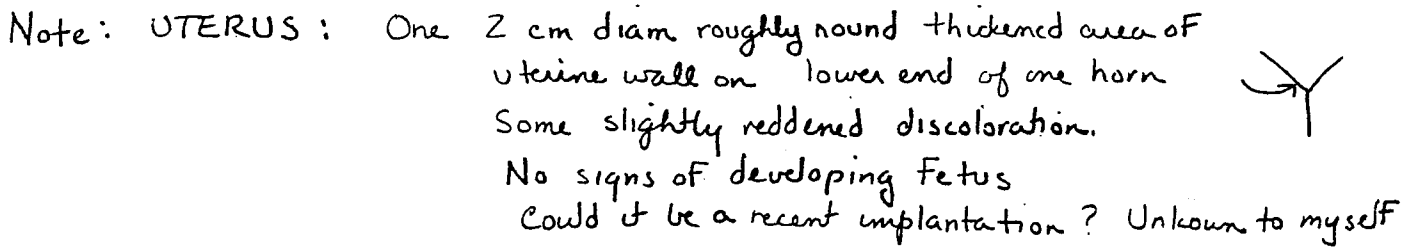 Note: UTERUS: One 2 cm diam roughly round thickened area of
uterine wall on lower end of one horn
Some slightly reddened discoloration.
No signs of developing Fetus
Could it be a recent implantation? Unkown to myself